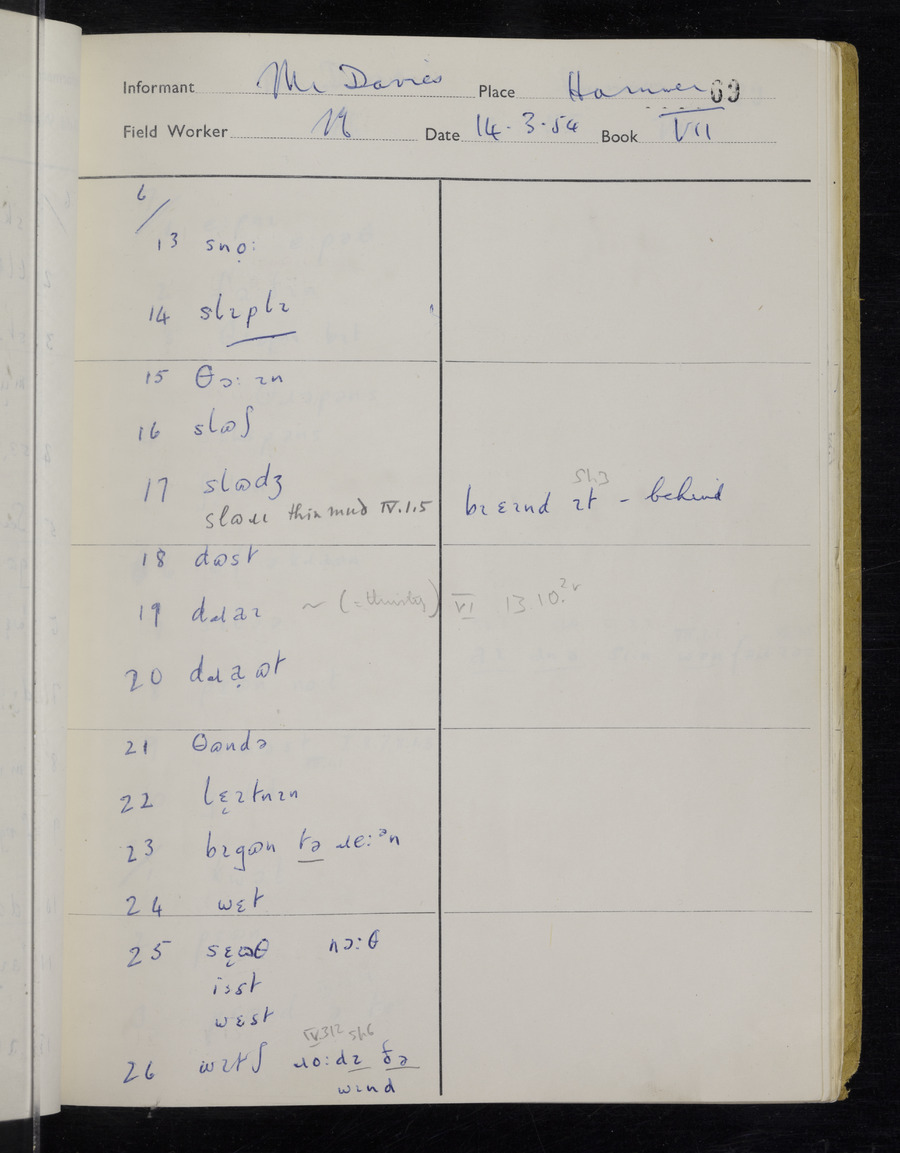 Informant Mr Davies Place Hanmer 69
Field Worker Date 14.3.54 Book VII
6/
13 snọ:
14 slɪplɪ
15 θɔ: ɪn
16 slɷʃ
17 slɷdʒ
slɷɹɪ thin mud IV.1.5
St.3
bɪɛɪnd ɪt - behind
18 dɷst
19 dɹaɪ ~ (= thirsty) VI 13.10.
20 dɹạɷt
21 θɷndə
22 lɛ̣ɪtnɪn
23 bɪgɷn tə ɹe:ᵊn
24 wɛt
25 sɛ̣ɷθ nɔ:θ
i:st
wɛst
IV.3.12 St.6
26 wɪtʃ ɹo:dɪ ðə
wɪnd